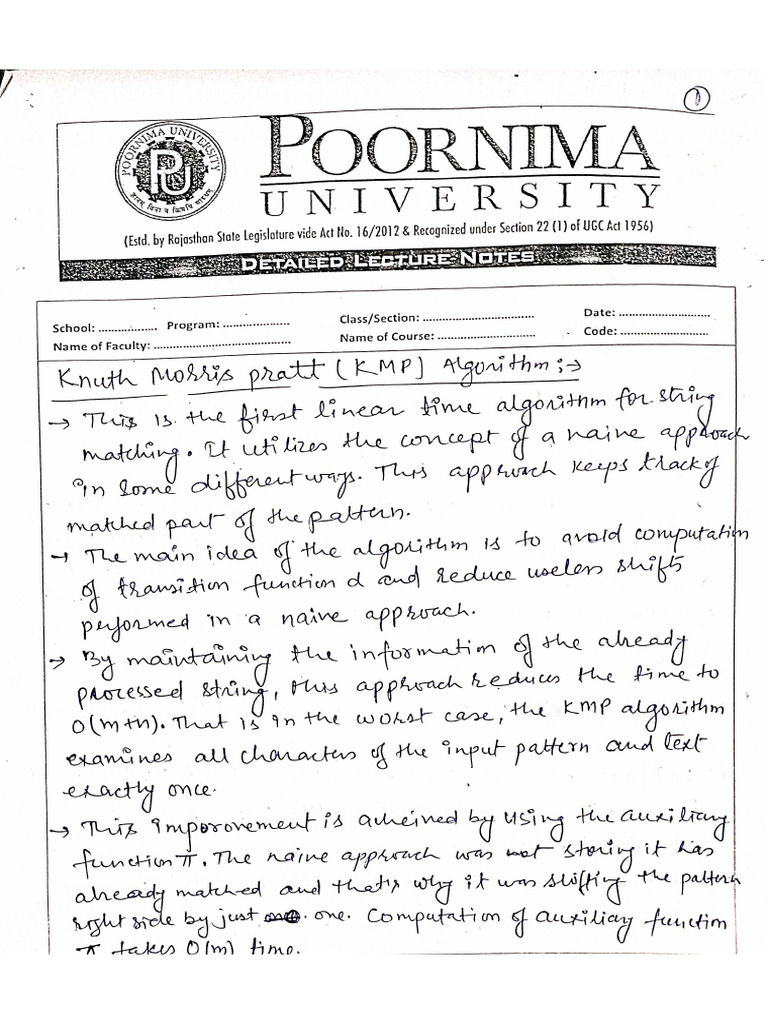 1
POORNIMA UNIVERSITY
PU
POORNIMA
UNIVERSITY
(Estd. by Rajasthan State Legislature vide Act No. 16/2012 & Recognized under Section 22 (1) of UGC Act 1956)
DETAILED LECTURE NOTES
School: .................. Program: .................... Class/Section: .................................. Date: ............................
Name of Faculty: .......................................... Name of Course: .............................. Code: ...........................
Knuth Morris Pratt (KMP) Algorithm :→
→ This is the first linear time algorithm for string
matching. It utilizes the concept of a naive approach
in some different ways. This approach keeps track of
matched part of the pattern.
→ The main idea of the algorithm is to avoid computation
of transition function d and reduce useless shifts
performed in a naive approach.
→ By maintaining the information of the already
processed string, this approach reduces the time to
O(m+n). That is in the worst case, the KMP algorithm
examines all characters of the input pattern and text
exactly once.
→ This imporovement is acheived by using the auxiliary
function π. The naive approach was not storing it has
already matched and that's why it was shifting the pattern
right side by just one. Computation of auxiliary function
π takes O(m) time.